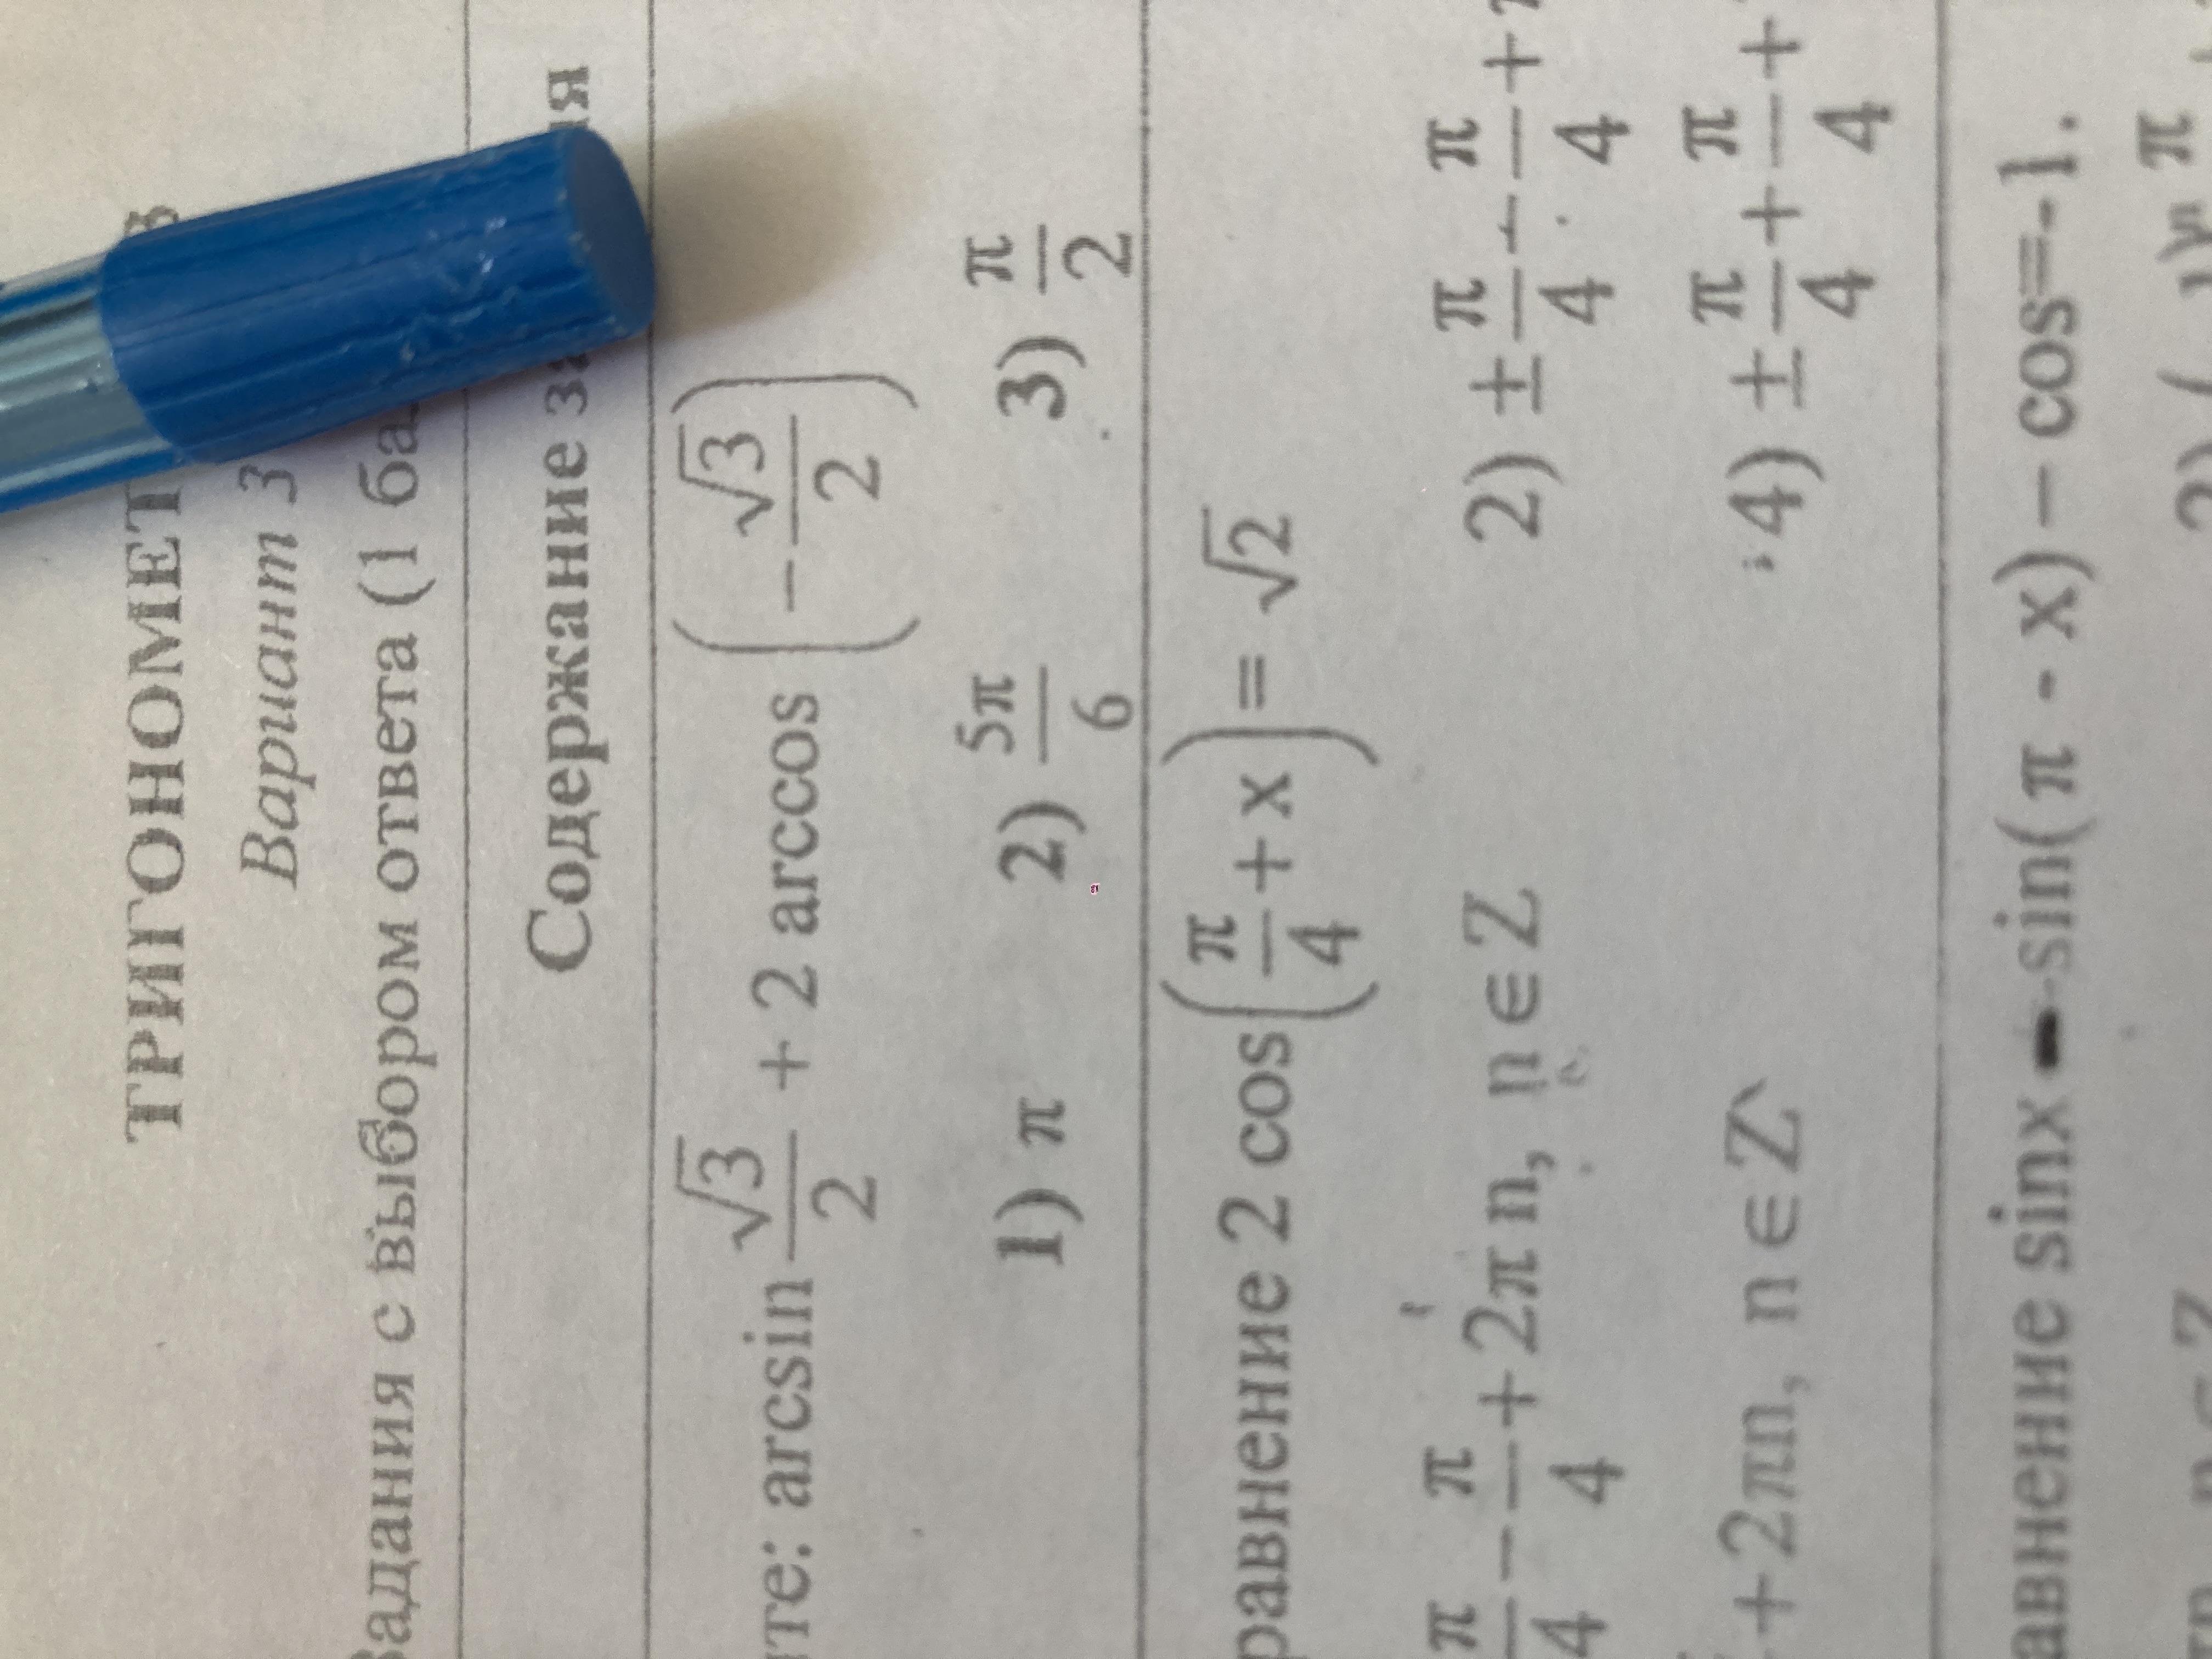 ТРИГОНОМЕТ
Вариант 3
Задания с выбором ответа (1 ба
Содержание за
те: arcsin √3/2 + 2 arccos (−√3/2)
1) π 2) 5π/6 3) π/2
равнение 2 cos(π/4 + x) = √2
π/4 − π/4 + 2πn, n ∈ Z 2) ± π/4 − π/4 +
+ 2πn, n ∈ Z 4) ± π/4 + π/4 +
авнение sinx - sin(π - x) – cos=-1.
π